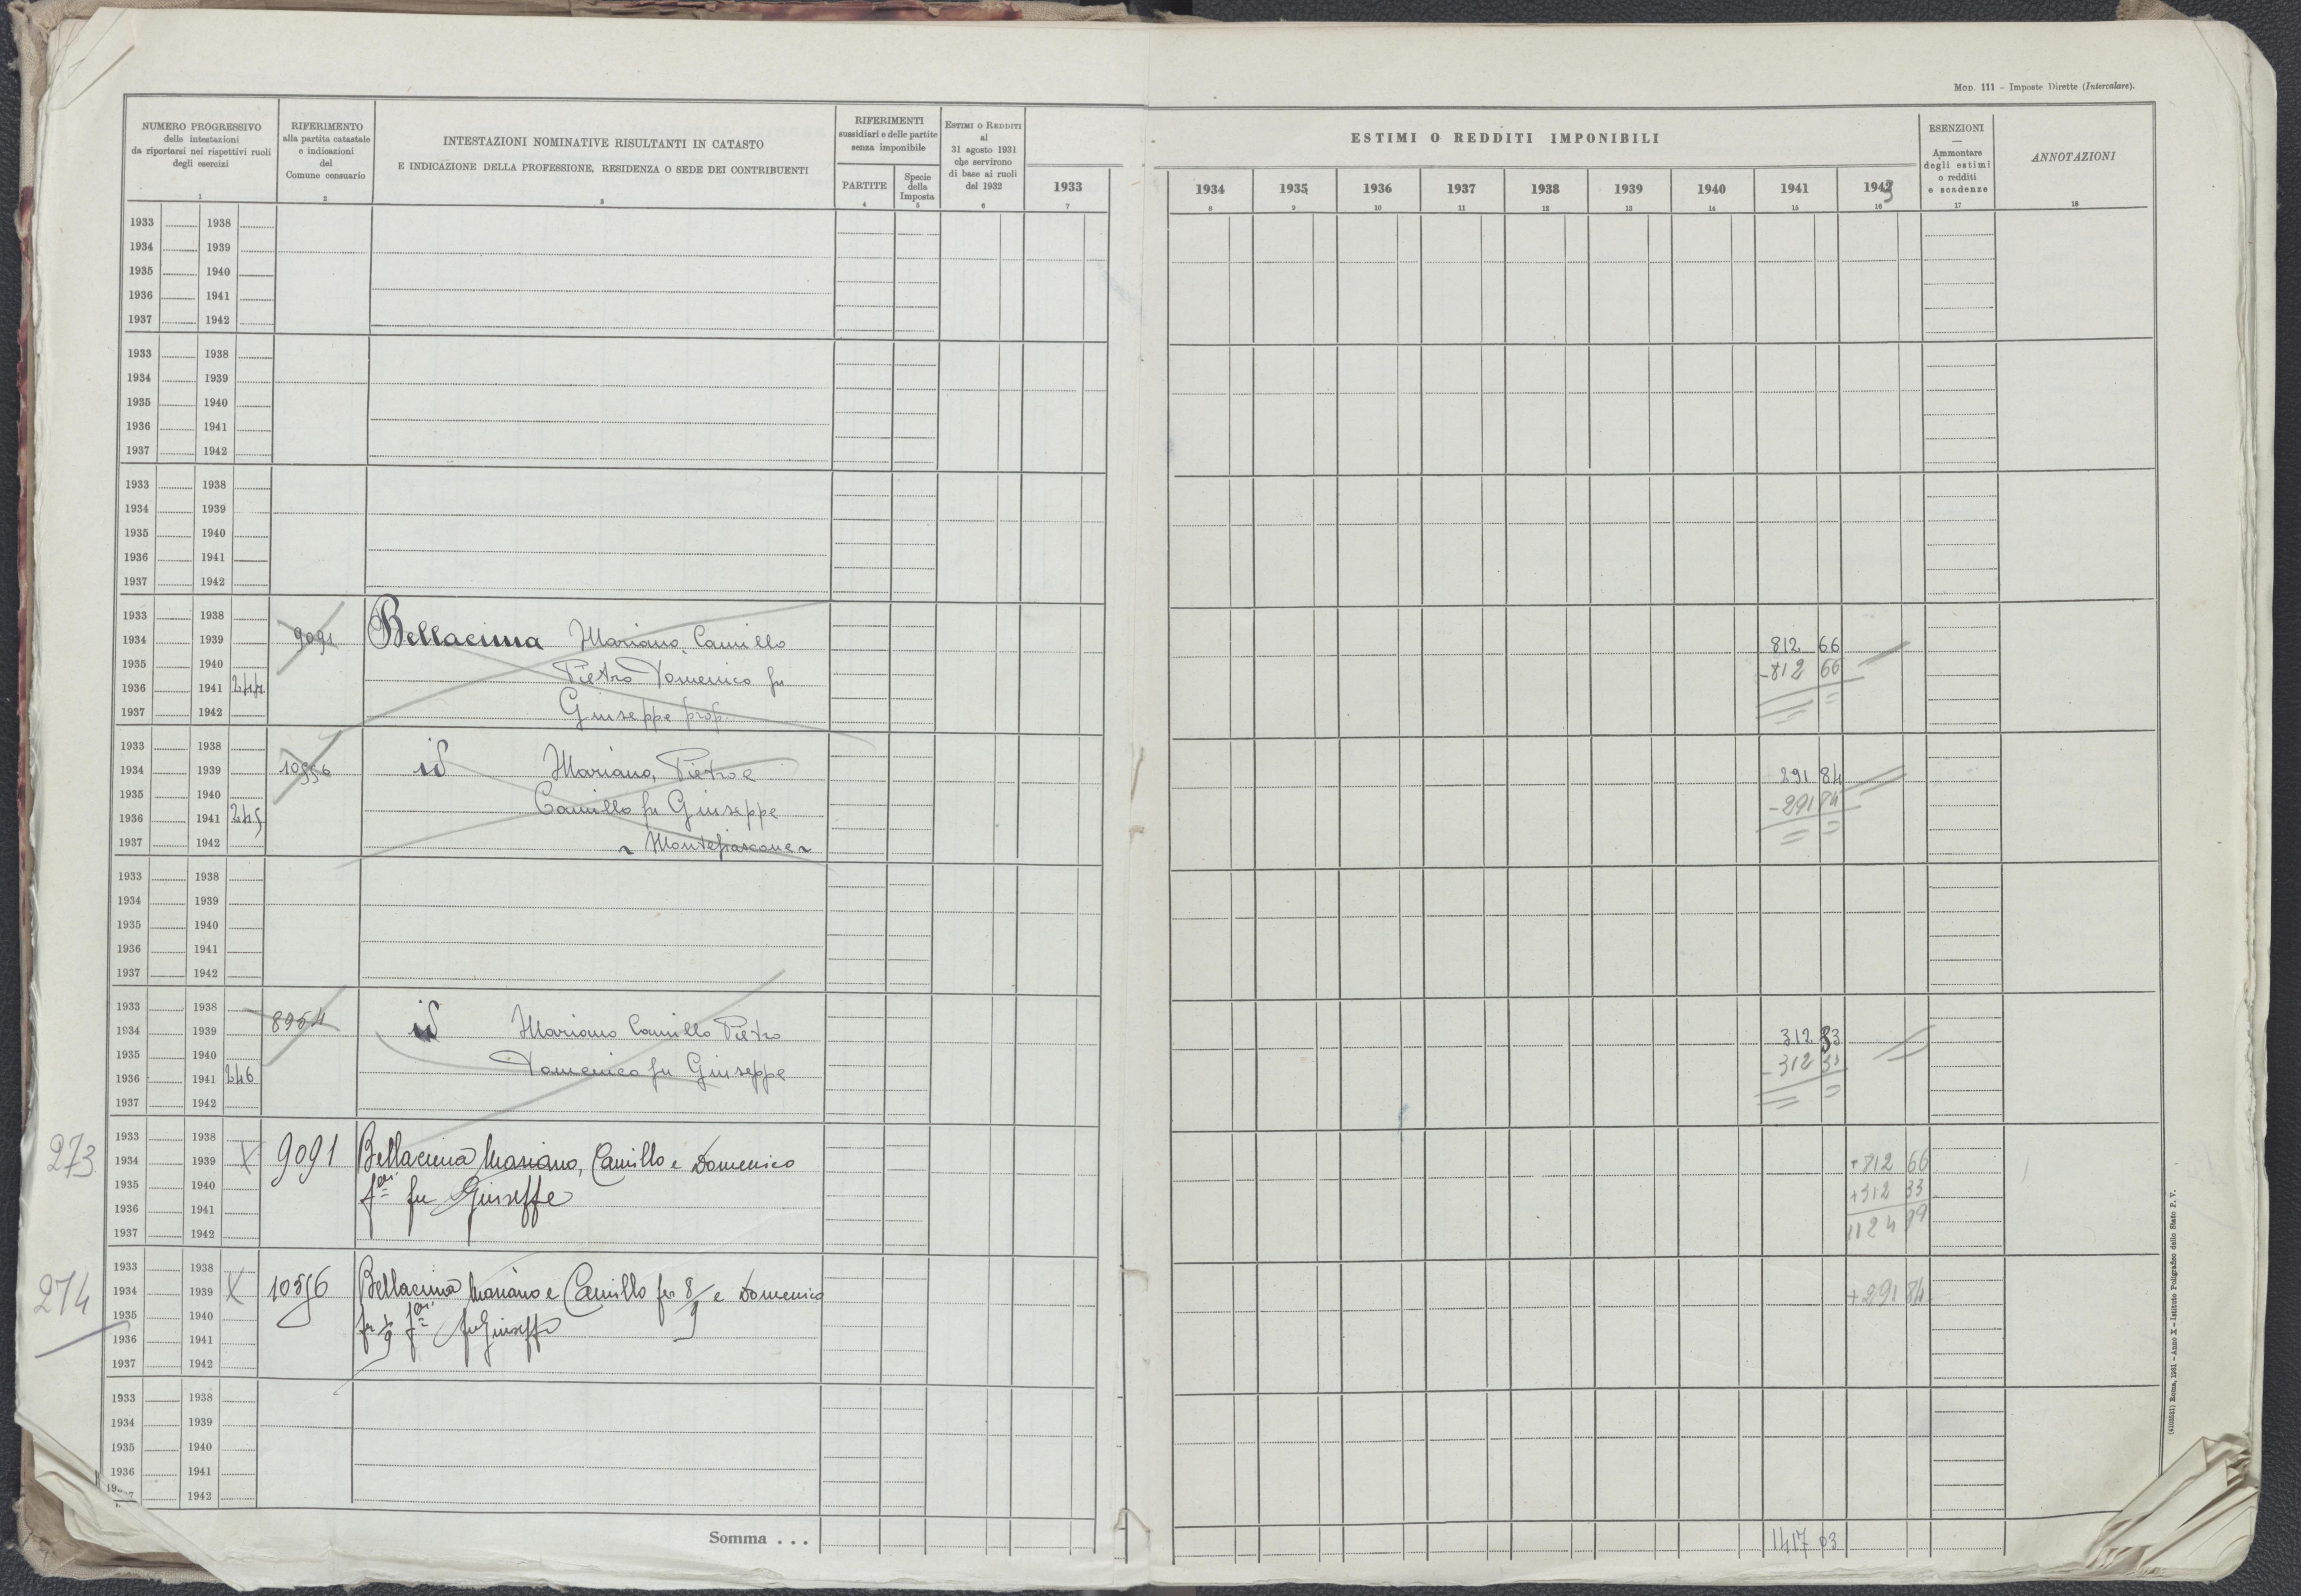 Mod. 111 - Imposte Dirette (Intercalare).
NUMERO PROGRESSIVO
delle intestazioni
da riportarsi nei rispettivi ruoli
degli esercizi
1
RIFERIMENTO
alla partita catastale
e indicazioni
del
Comune censuario
2
INTESTAZIONI NOMINATIVE RISULTANTI IN CATASTO
E INDICAZIONE DELLA PROFESSIONE, RESIDENZA O SEDE DEI CONTRIBUENTI
3
RIFERIMENTI
sussidiari e delle partite
senza imponibile
PARTITE
4
Specie
della
Imposta
5
Estimi o Redditi
al
31 agosto 1931
che servirono
di base ai ruoli
del 1932
6
ESTIMI O REDDITI IMPONIBILI
1933
7
1934
8
1935
9
1936
10
1937
11
1938
12
1939
13
1940
14
1941
15
1943
16
ESENZIONI
Ammontare
degli estimi
o redditi
e scadenze
17
ANNOTAZIONI
18
1933 1938
1934 1939
1935 1940
1936 1941
1937 1942
1933 1938
1934 1939
1935 1940
1936 1941
1937 1942
1933 1938
1934 1939
1935 1940
1936 1941
1937 1942
1933 1938
1934 1939 9091 Bellacima Mariano, Camillo 812 66
1935 1940 Pietro Domenico fu -812 66
1936 1941 244
1937 1942 Giuseppe prop. = =
1933 1938
1934 1939 10556 id Mariano, Pietro e 291 84
1935 1940 Camillo fu Giuseppe -291 84
1936 1941 245
1937 1942 Montefiascone = =
1933 1938
1934 1939
1935 1940
1936 1941
1937 1942
1933 1938
1934 1939 8954 id Mariano Camillo Pietro 312 33
1935 1940 Domenico fu Giuseppe -312 33
1936 1941 246
1937 1942 = =
1933 1938
273 1934 1939 X 9091 Bellacima Mariano, Camillo e Domenico +812 66
1935 1940 f.ri fu Giuseppe +312 33
1936 1941 1124 99
1937 1942
1933 1938
274 1934 1939 X 10556 Bellacima Mariano e Camillo per 8/9 e Domenico +291 84
1935 1940 per 1/9 f.ri fu Giuseppe
1936 1941
1937 1942
1933 1938
1934 1939
1935 1940
1936 1941
1942
Somma . . . 1417 03
(4103531) Roma, 1931 - Anno X - Istituto Poligrafico dello Stato P. V.